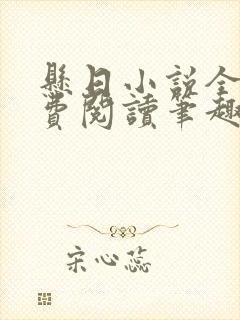 懸日小說全
費閱讀筆趣
宋心蕊